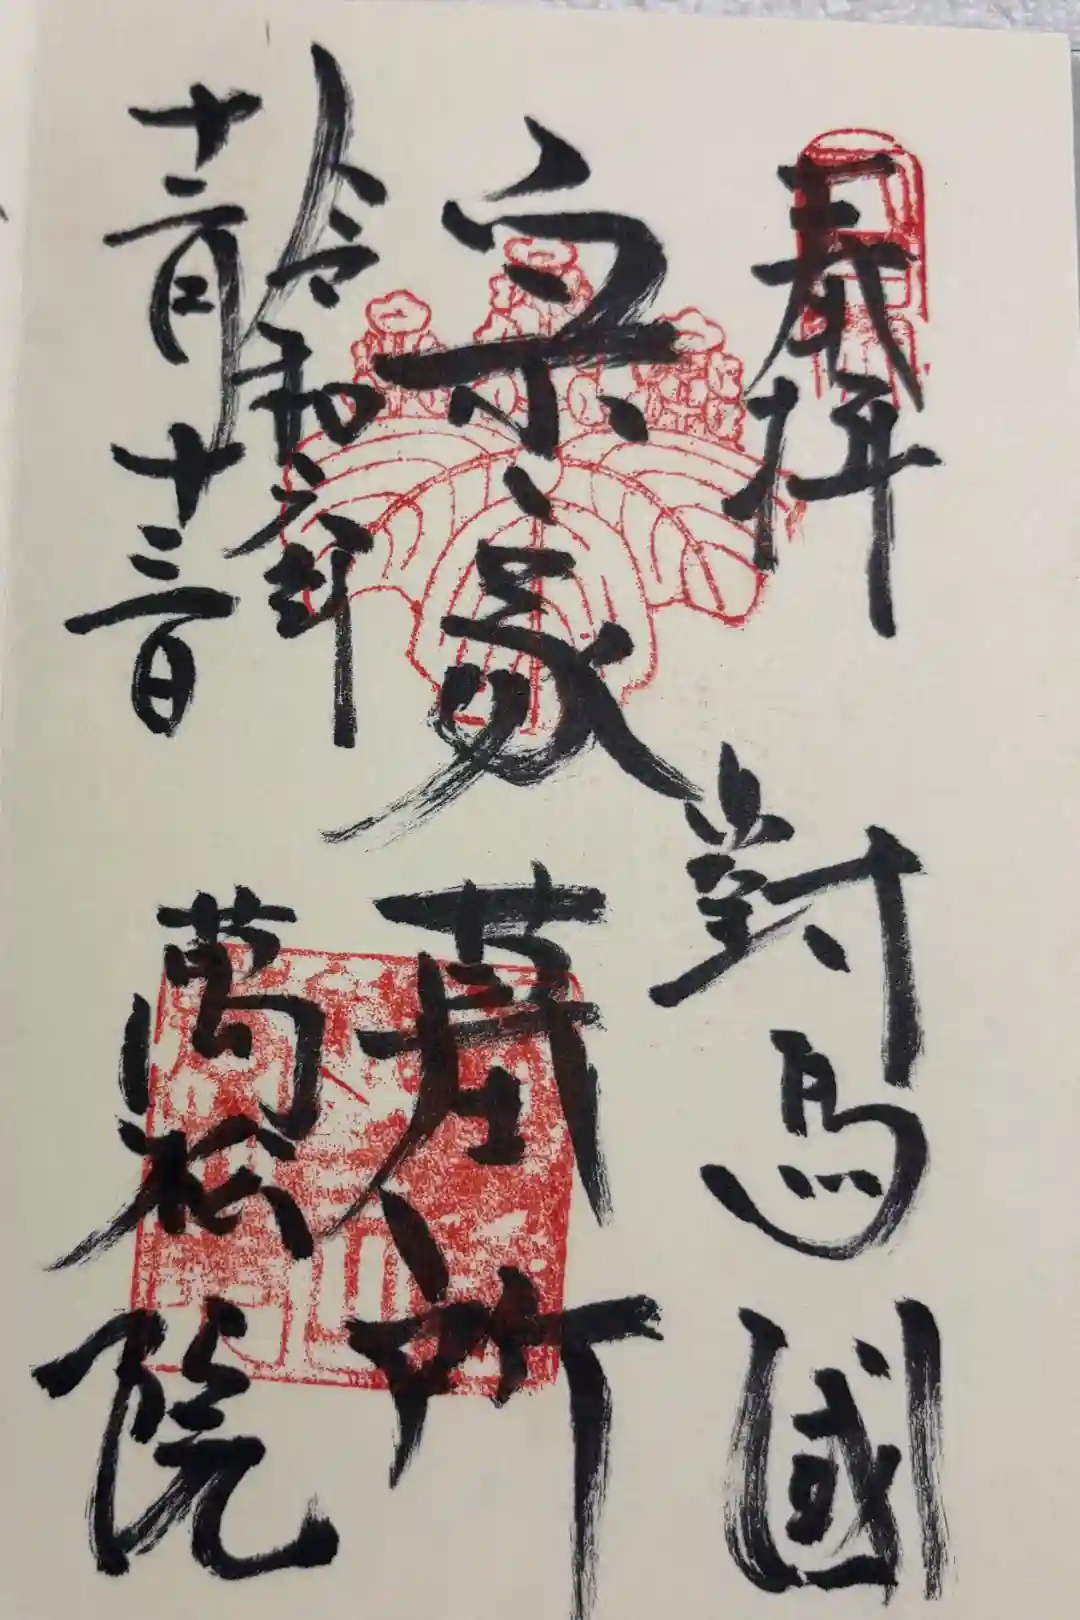 奉拝　對馬國
宗家墓所
令和六年
十二月十三日　萬松院